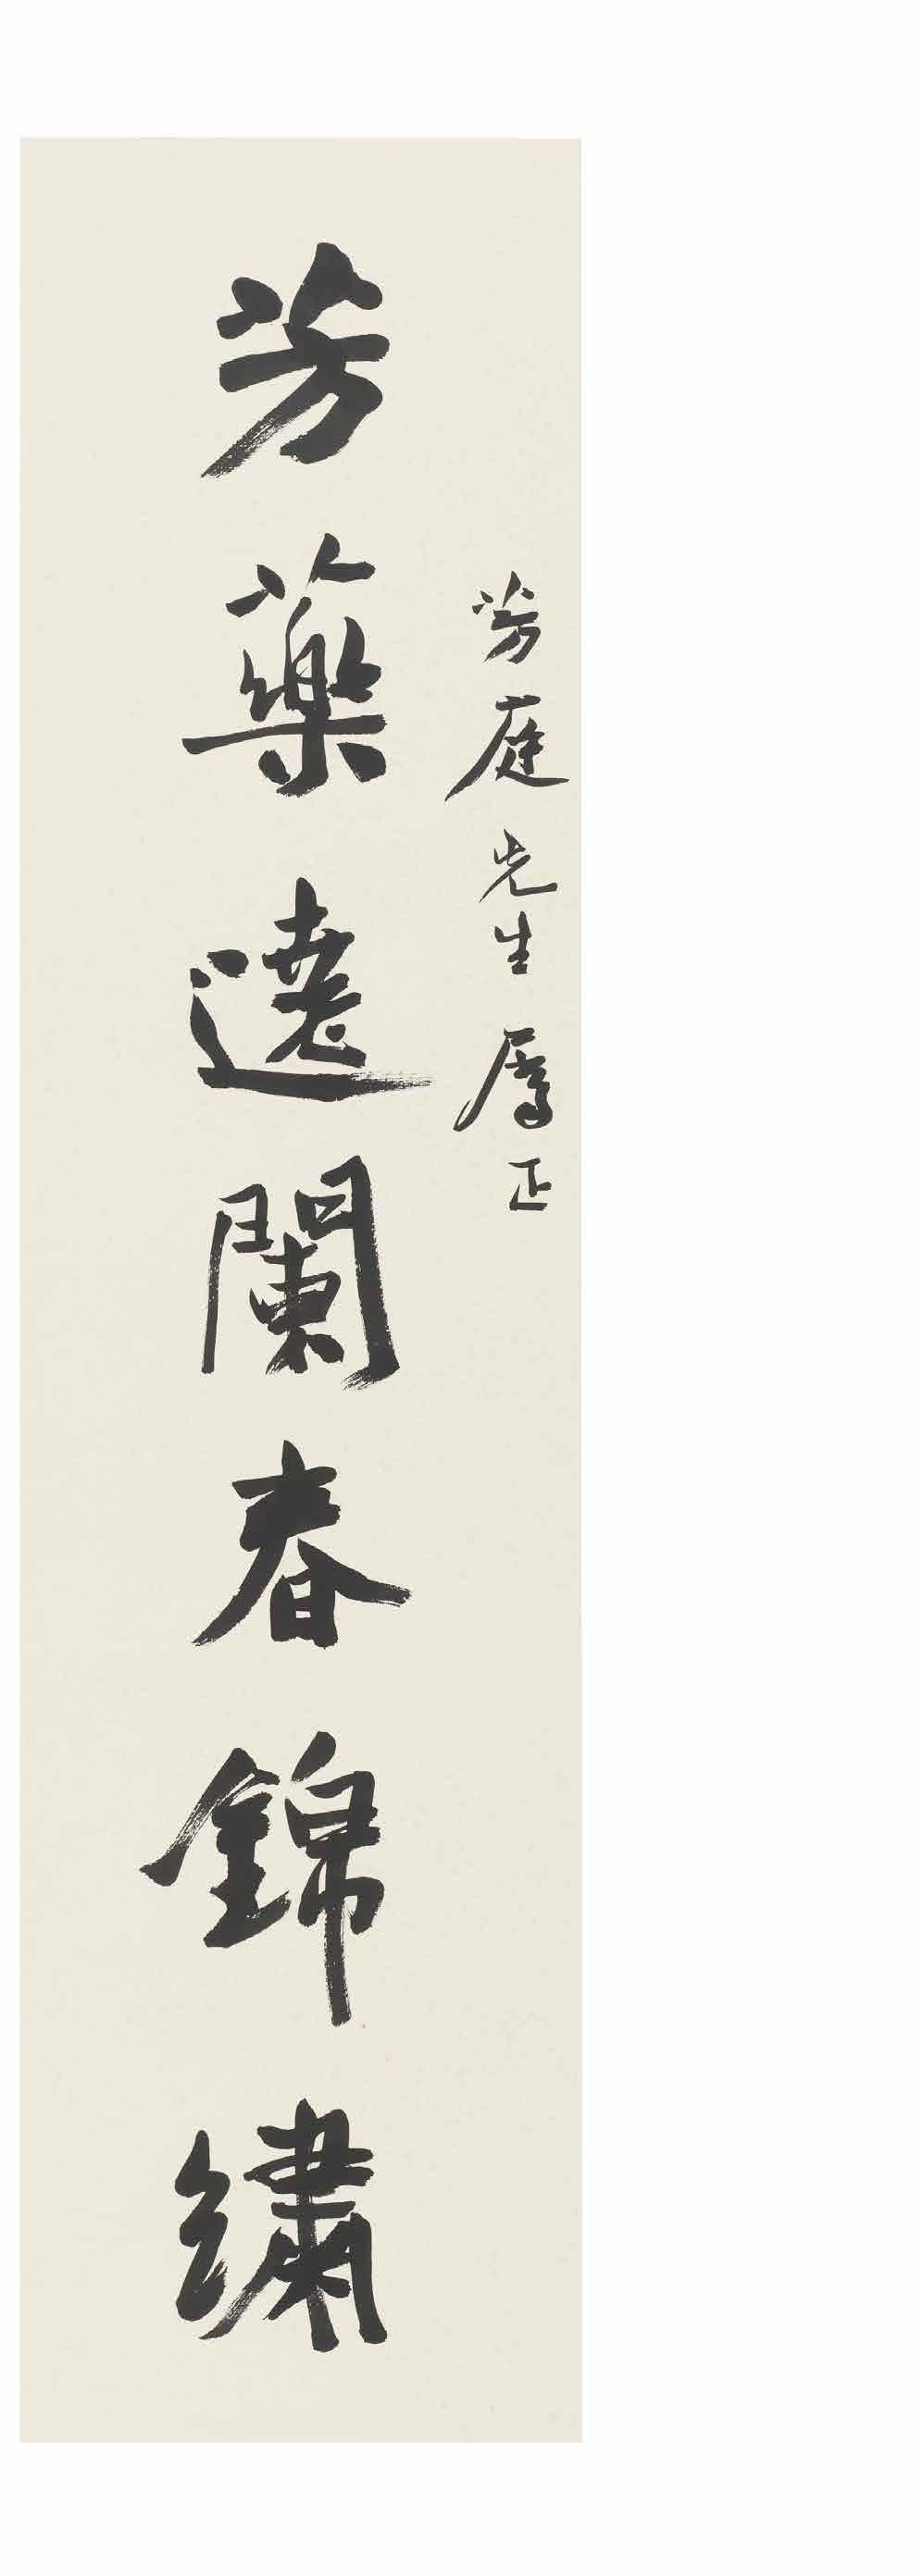 芳庭先生屬正
芳藥遶闌春錦繡